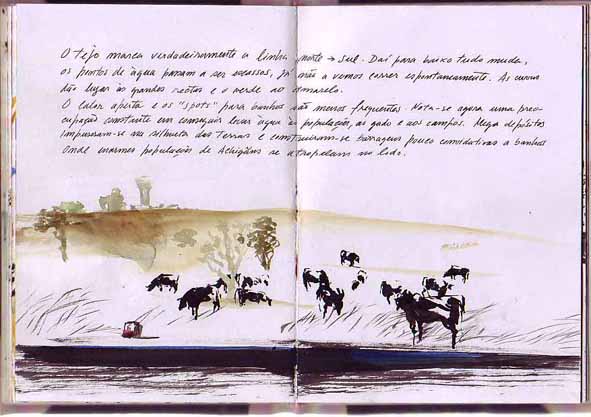 O Tejo marca verdadeiramente a linha norte → sul. Daí para baixo tudo muda,
os pontos de água passam a ser escassos, já não a vemos correr espontaneamente. As curvas
dão lugar às grandes rectas e o verde ao amarelo.
O calor aperta e os "spots" para banhos são menos frequentes. Nota-se agora uma preo-
cupação constante em conseguir levar água às populações, ao gado e aos campos. Mega depósitos
impuseram-se na silhueta das terras e construiram-se barragens pouco convidativas a banhos
onde enormes populações de Achigãns se atropelam no lodo.